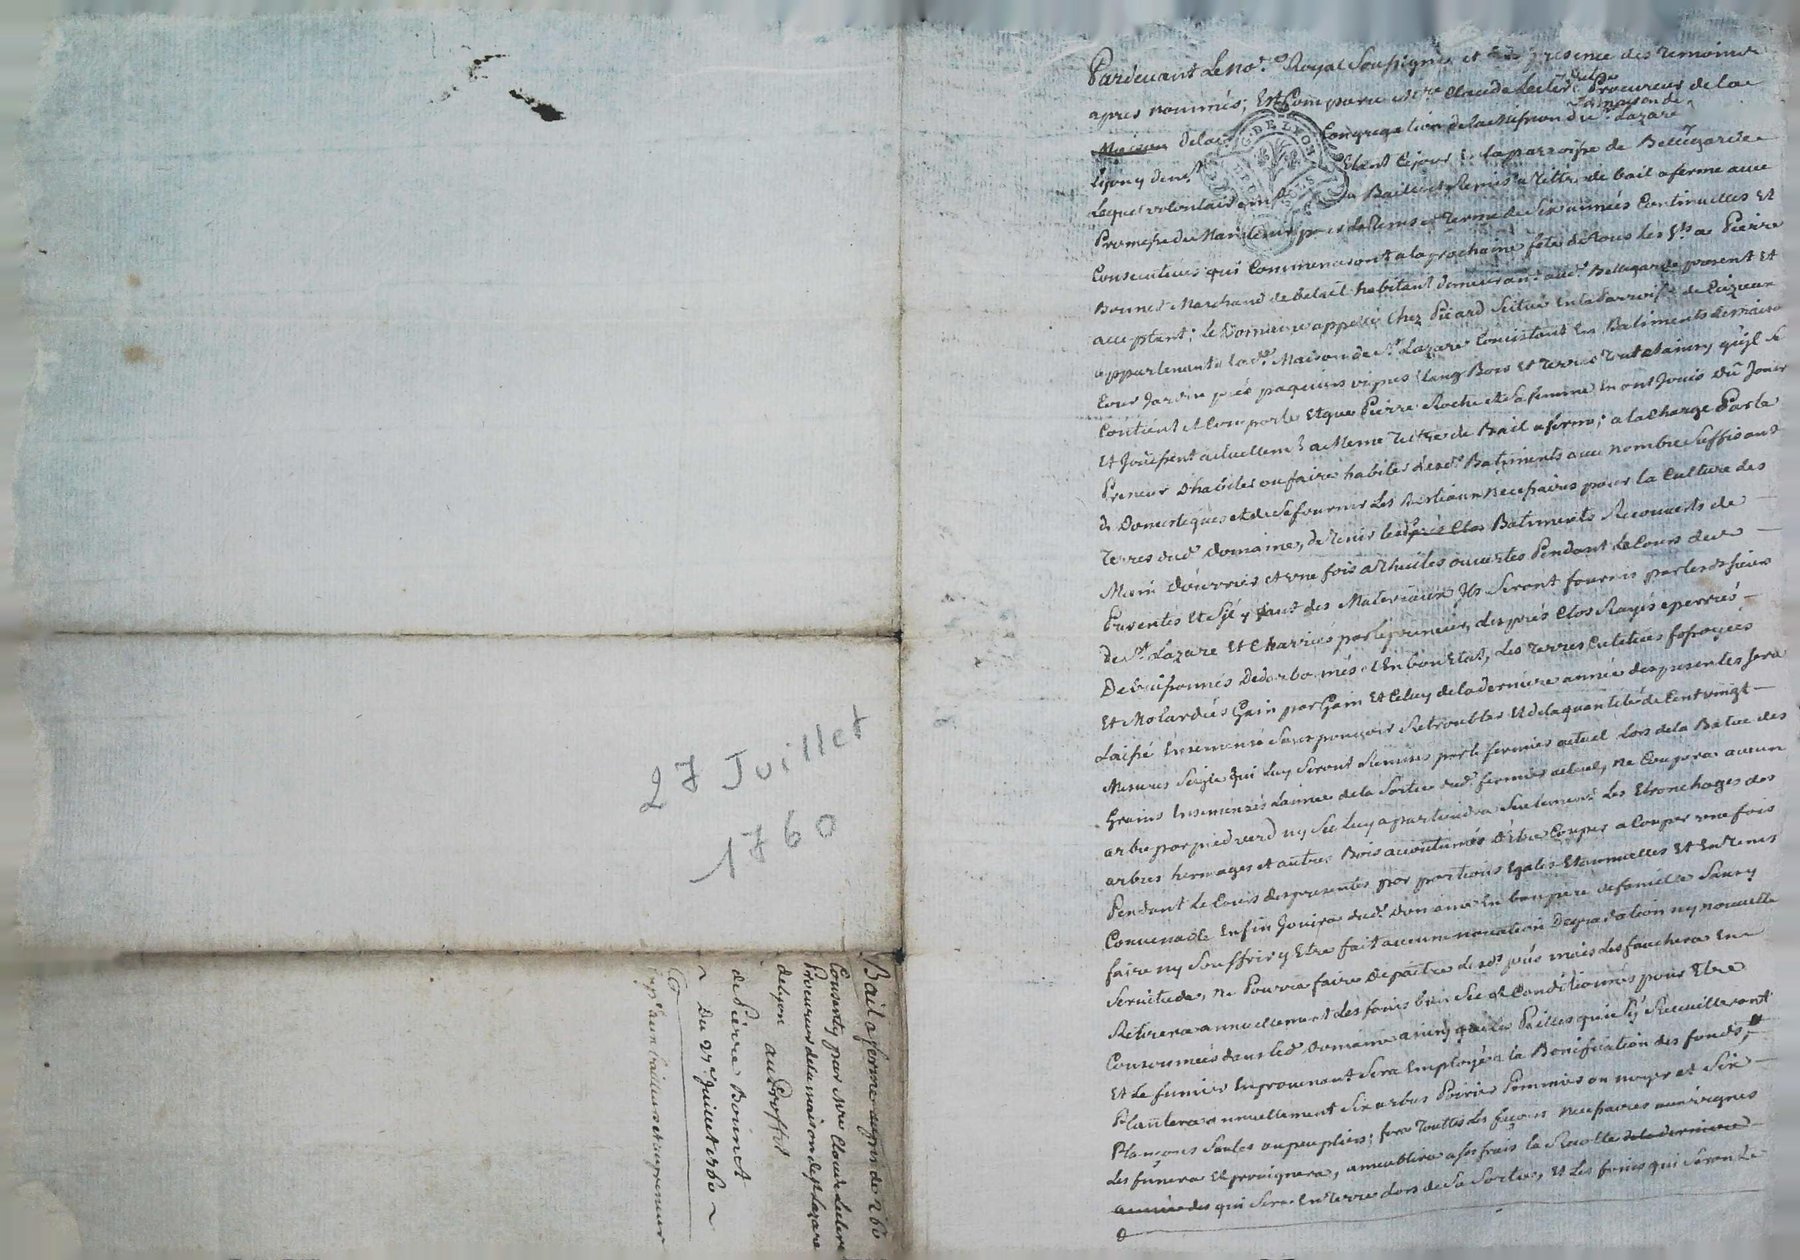 27 Juillet
1760
Bail a ferme au prix de 260
Consenty par Mre Claude Leclerc
Procureur de la maison de St Lazare
de Lyon au Proffit
de Pierre Bonnet
Du 27e Juillet 1760
Pardevant Le Not.re Royal Soussigné et En presence des Temoins
apres nommés; Est Comparu Mre Claude Leclerc Ptre Procureur de la
Maison de la Congregation de la Mission du St Lazare
la maison de
G. DE LYON
Lyon y demt Etant Ce jour En la parroisse de Bellegarde
Lequel volontairemt a Baillé et Remis a Titre de bail a ferme avec
Promesse de Maintenir pour le Tems et Terme de Six années Continuelles Et
Consecutives qui Commenceront a la prochaine fête de Tous les Sts a Pierre
Bonnet Marchand de Betail habitant demeurant aud. Bellegarde present Et
acceptant; Le Domaine appellé Chez Picard Situé En la Parroisse de Cuzieux
appartenant a lad. Maison de St Lazare Consistant En Batiments de maitre
Cour Jardin prés paquiers vignes Etang Bois Et Terres Tout et ainsy qu'il se
Contient et Comporte Et que Pierre Roche et Sa femme En ont Jouis Dû Jouir
Et Jouissent actuellemt a Meme Titre de Bail a ferme; a la Charge Par le
Preneur D'habiter ou faire habiter lesd. Batiments avec nombre Suffisant
de Domestiques et de Se fournir Les Bestiaux Necessaires pour la Culture des
Terres dud. Domaine, de Tenir lesd. prés Clos Batiments Recouverts de
Main D'ouvriers et une fois a Thuiles ouvertes Pendant Le Cours des
Presentes Et S'il y faut des Materiaux Ils Seront fournis par lesd. Sieurs
de St Lazare Et Charriés par le preneur, les prés Clos Rayés eperrés
Debuissonnés Dedarbonnés et En bon Etat, Les Terres Cultivées fossoyées
Et Molardiés Gain par Gain Et Celuy de la derniere année des presentes Sera
Laissé Ensemencé Sans pouvoir Retroubler Et de la quantité de Cent vingt
Mesures Seigle qui Luy Seront Remises par le fermier actuel Lors de la Batue des
Grains Ensemencés L'année de la Sortie dud. fermier actuel, ne Coupera aucun
arbre par pied verd ny Sec Luy apartiendra Seulement Les Etronchages des
arbres hermages et autres Bois accoutumés D'être Coupés a Couper une fois
Pendant Le Cours des presentes par portions Egales Et annuelles Et En Tems
Convenable Enfin Jouira dud. Domaine En bon pere de famille Sans y
faire ny Souffrir y Etre fait aucune novation Degradation ny nouvelle
Servitude, ne Pourra faire Depaitre lesd. prés mais les fauchera En
Retirera annuellement les foins bien Sec et Conditionnés pour Etre
Consommés dans led. Domaine ainsy que les Pailles qui S'y Recueilleront
Et Le fumier En provenant Sera Employé a la Bonification des fonds,
Plantera annuellement Six arbres Poiriers Pommiers ou noyer et Six
Plançons Saules ou peupliers; fera Touttes les façons necessaires aux vignes
Les fumera Et provignera, ameublira a ses frais la Recolte de la derniere
année des qui Sera En Terre Lors de Sa Sortie, Et Les foins qui Seront